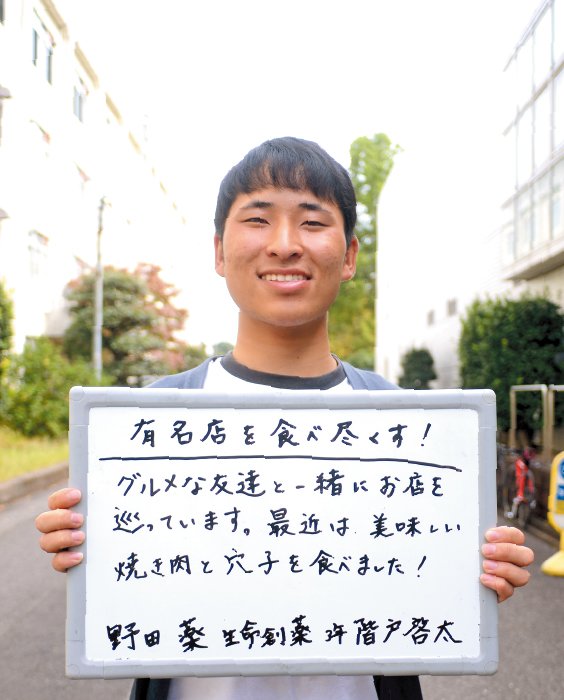 有名店を食べ尽くす！
グルメな友達と一緒にお店を
巡っています。最近は、美味しい
焼き肉と穴子を食べました！
野田 薬 生命創薬 3年 階戸啓太